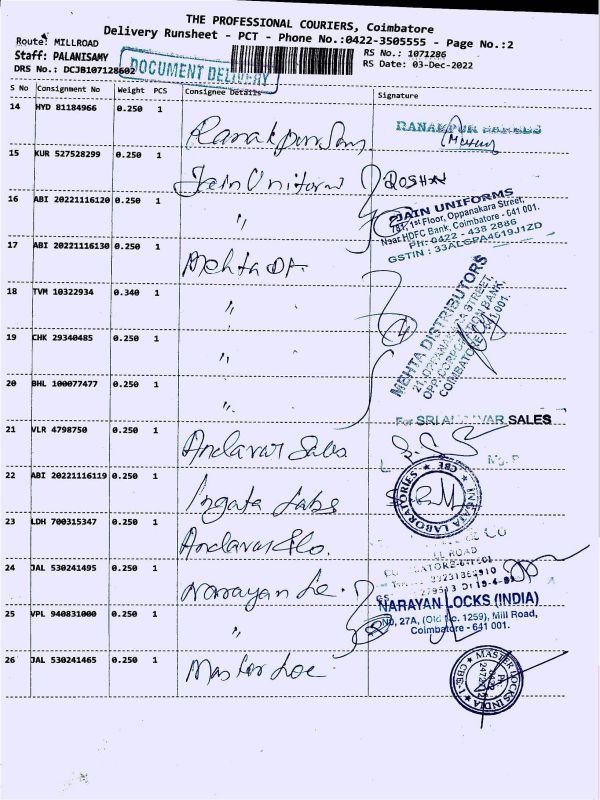 THE PROFESSIONAL COURIERS, Coimbatore
Delivery Runsheet - PCT - Phone No.:0422-3505555 - Page No.:2
Route: MILLROAD
RS No.: 1071286
Staff: PALANISAMY
RS Date: 03-Dec-2022
DRS No.: DCJB107128602
DOCUMENT DELIVERY
S No Consignment No Weight PCS Consignee Details Signature
14 HYD 81184966 0.250 1
Ranakpur Sarees
RANAKPUR SAREES
15 KUR 527528299 0.250 1
Jain Uniform
ROSHAN
16 ABI 20221116120 0.250 1
"
JAIN UNIFORMS
781, 1st Floor, Oppanakara Street,
Near HDFC Bank, Coimbatore - 641 001.
Ph: 0422 - 438 2886
GSTIN : 33ALGPA4619J1ZD
17 ABI 20221116130 0.250 1
Mehta Dt.
18 TVM 10322934 0.340 1
" "
MEHTA DISTRIBUTORS
OPPANAKARA STREET,
OPP. CORPORATION BANK,
COIMBATORE - 641 001.
19 CHK 29340485 0.250 1
" "
20 BHL 100077477 0.250 1
" "
For SRI ANDAVAR SALES
21 VLR 4798750 0.250 1
Andavar Sales
22 ABI 20221116119 0.250 1
Ingata Labs
INGATA LABORATORIES
CBE
23 LDH 700315347 0.250 1
Andavar Elo.
24 JAL 530241495 0.250 1
Narrayan Lo.
NARAYAN LOCKS (INDIA)
NO, 27A, (Old No. 1259), Mill Road,
Coimbatore - 641 001.
25 VPL 940831000 0.250 1
"
26 JAL 530241465 0.250 1
Master Loc
MASTER LOCKS INDIA
CBE-1
PH:
0422